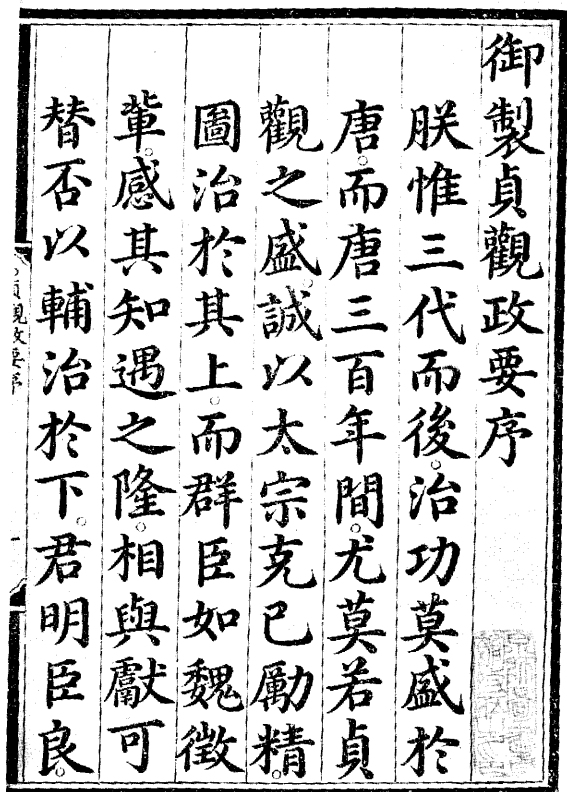 御製貞觀政要序
朕惟三代而後。治功莫盛於
唐。而唐三百年間。尤莫若貞
觀之盛。誠以太宗克己勵精。
圖治於其上。而群臣如魏徵
輩。感其知遇之隆。相與獻可
替否以輔治於下。君明臣良。
貞觀政要序